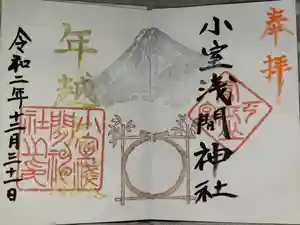 奉拝
小室浅間神社
年越
令和二年十二月三十一日